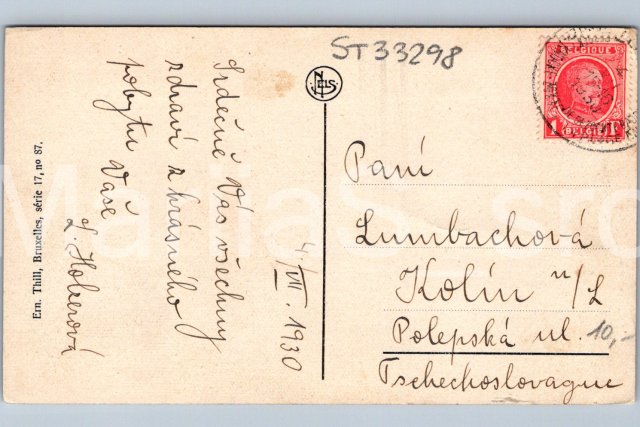 ST33298
Srdečně Vás všechny
zdraví z krásného
pobytu Vaše
L. Holcerová
4/VII. 1930
Ern. Thill, Bruxelles, série 17, no 87.
NELS
BELGIQUE
1F
BELGIË
Paní
Lumbachová
Kolín n/L
Polepská ul. 10,-
Tschechoslovaque